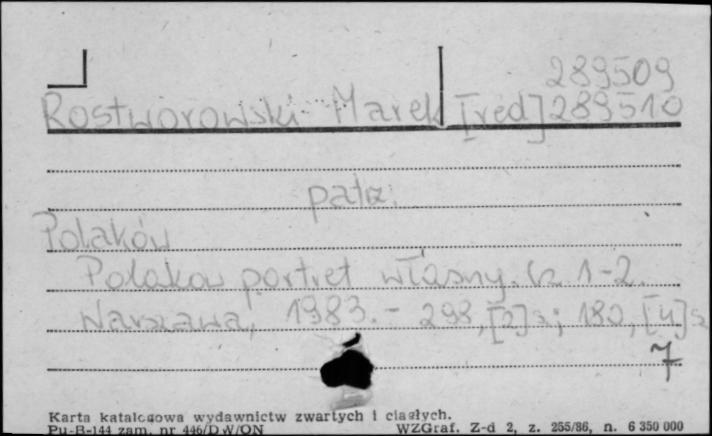 289509
Rostworowski Marek [red] 289510
patrz:
Polaków
Polaków portret własny. Cz. 1-2.
Warszawa, 1983. - 298, [2] s.; 180, [4] s
7
Karta katalogowa wydawnictw zwartych i ciągłych.
Pu-B-144 zam. nr 446/DW/ON WZGraf. Z-d 2, z. 255/86, n. 6 350 000